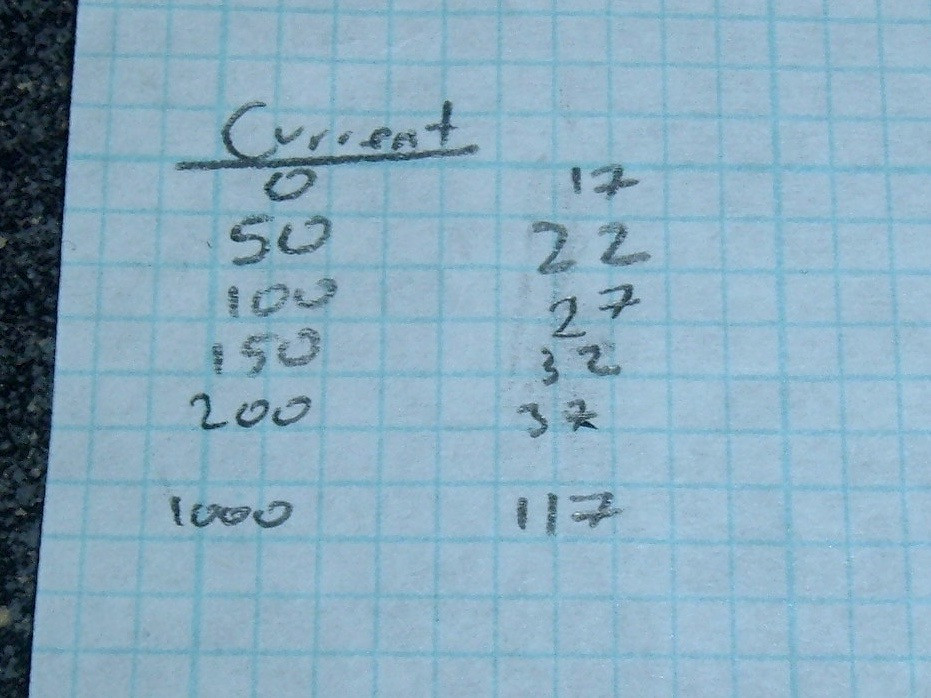 Current
0 17
50 22
100 27
150 32
200 37
1000 117